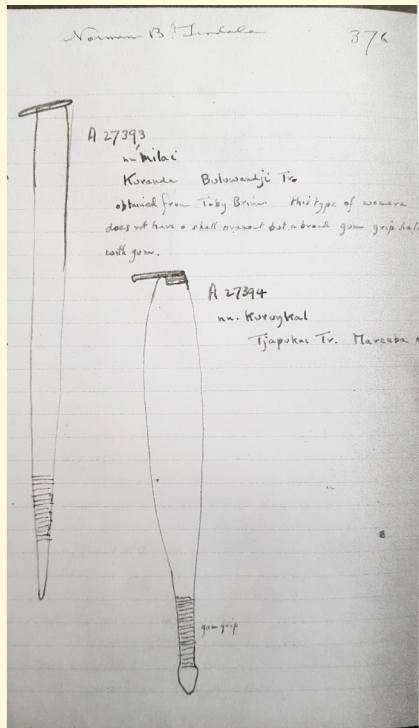 Norman B. Tindale
376
A 27393
nn 'milai
Kuranda Buluwandji Tr.
obtained from Toby Brian this type of womera
does not have a shell ornament but a broad gum grip
with gum.
A 27394
nn. Kurungkal
Tjapukai Tr. Mareeba
gum grip